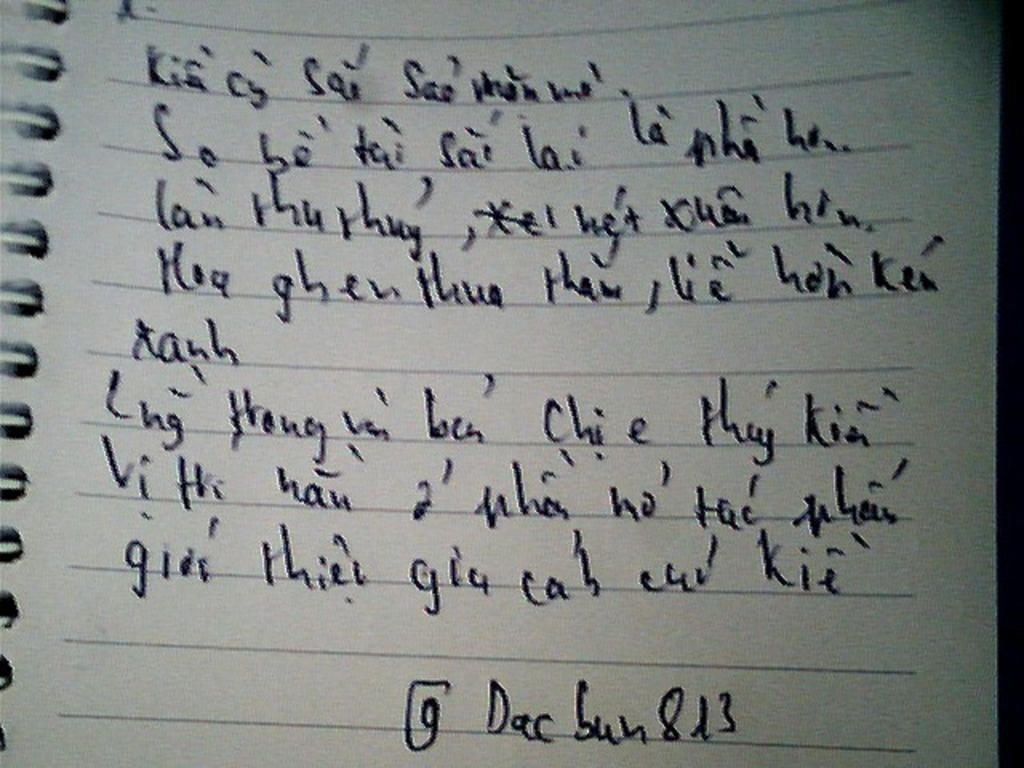 Kiề cg sắ sảo mặn mà.
So bề tài sắ lại là phầ hơn.
làn thu thuỷ, nét xuân hơn.
Hoa ghen thua thắm, liễ hờn kém
xanh
trong văn bản Chị e thuý kiề
Vị trí nằm ở phần mở tác phẩm
giới thiệu gia cảnh Kiề
g Dac bun 813